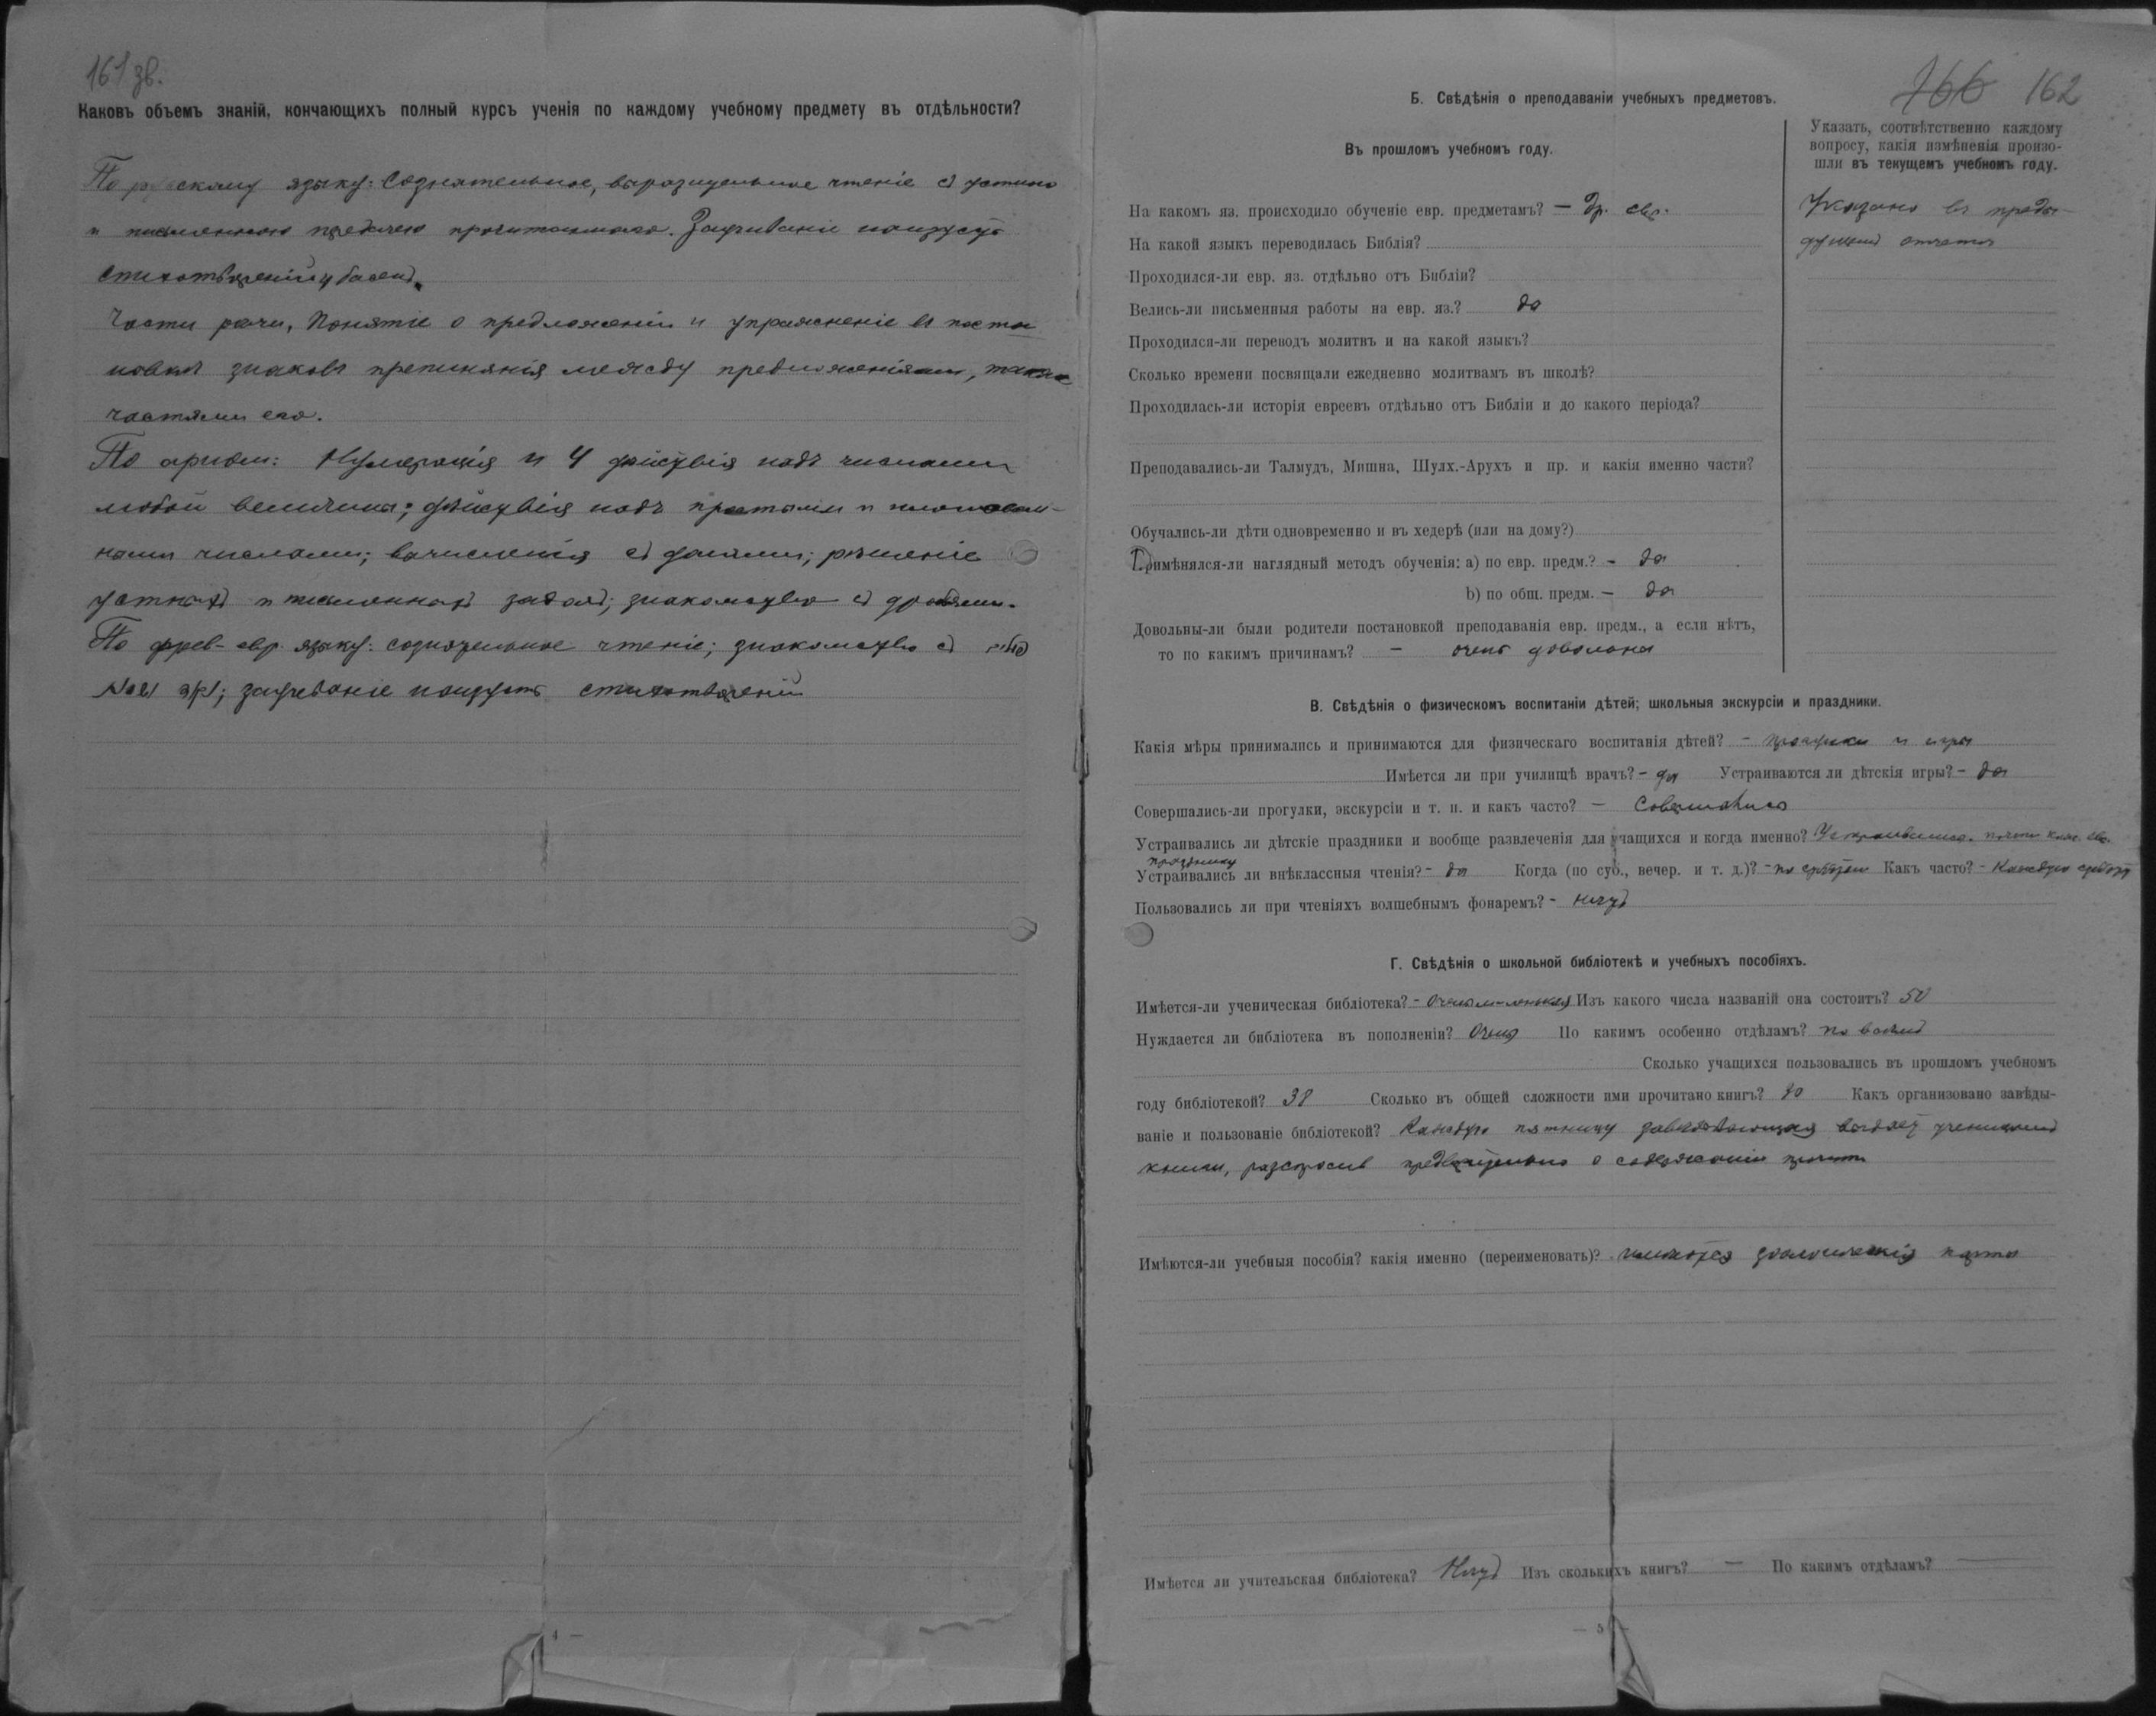 161 зв.
Каковъ объемъ знаній, кончающихъ полный курсъ ученія по каждому учебному предмету въ отдѣльности?
По русскому языку: Сознательное, выразительное чтеніе съ устною
и письменною передачею прочитаннаго. Заучиваніе наизусть
стихотвореній и басенъ.
Части рѣчи, Понятіе о предложеніи и упражненіе въ поста
новкѣ знаковъ препинанія между предложеніями, также
частями его.
По ариѳм: Нумерація и 4 дѣйствія надъ числами
любой величины; дѣйствія надъ простыми и имено­ван-
ными числами; вычисленія съ долями; рѣшеніе
устныхъ и письменныхъ задачъ; знакомство съ дробями.
По древ-евр. языку: сознательное чтеніе; знакомство съ
заучеваніе наизусть стихотвореній
4 —
166 162
Б. Свѣдѣнія о преподаваніи учебныхъ предметовъ.
Въ прошломъ учебномъ году.
Указать, соотвѣтственно каждому
вопросу, какія измѣненія произо-
шли въ текущемъ учебномъ году.
На какомъ яз. происходило обученіе евр. предметамъ? — Др. евр.
Указано въ преды-
дущемъ отчетѣ
На какой языкъ переводилась Библія?
Проходился-ли евр. яз. отдѣльно отъ Библіи?
Велись-ли письменныя работы на евр. яз.? да
Проходился-ли переводъ молитвъ и на какой языкъ?
Сколько времени посвящали ежедневно молитвамъ въ школѣ?
Проходилась-ли исторія евреевъ отдѣльно отъ Библіи и до какого періода?
Преподавались-ли Талмудъ, Мишна, Шулх.-Арухъ и пр. и какія именно части?
Обучались-ли дѣти одновременно и въ хедерѣ (или на дому?)
Примѣнялся-ли наглядный методъ обученія: а) по евр. предм.? — да
b) по общ. предм. — да
Довольны-ли были родители постановкой преподаванія евр. предм., а если нѣтъ,
то по какимъ причинамъ? — очень довольны
В. Свѣдѣнія о физическомъ воспитаніи дѣтей; школьныя экскурсіи и праздники.
Какія мѣры принимались и принимаются для физическаго воспитанія дѣтей? — прогулки и игры
Имѣется ли при училищѣ врачъ? — да Устраиваются ли дѣтскія игры? — да
Совершались-ли прогулки, экскурсіи и т. п. и какъ часто? — Совершались
Устраивались ли дѣтскіе праздники и вообще развлеченія для учащихся и когда именно? Устраивались. почти кажд. евр.
празднику
Устраивались ли внѣклассныя чтенія? — да Когда (по суб., вечер. и т. д.)? — по субботам Какъ часто? — Каждую субботу
Пользовались ли при чтеніяхъ волшебнымъ фонаремъ? — Нѣтъ
Г. Свѣдѣнія о школьной библіотекѣ и учебныхъ пособіяхъ.
Имѣется-ли ученическая библіотека? — Очень маленькая Изъ какого числа названій она состоитъ? 50
Нуждается ли библіотека въ пополненіи? Очень По какимъ особенно отдѣламъ? по всѣмъ
Сколько учащихся пользовались въ прошломъ учебномъ
году библіотекой? 38 Сколько въ общей сложности ими прочитано книгъ? Какъ организовано завѣды-
ваніе и пользованіе библіотекой? Каждую пятницу завѣдывающая выдаетъ ученикамъ
книги, разспросив предварительно о содержаніи прочит
Имѣются-ли учебныя пособія? какія именно (переименовать)? имѣются зоологическія карты
Имѣется ли учительская библіотека? Нѣтъ Изъ сколькихъ книгъ? — По какимъ отдѣламъ? —
— 5 —